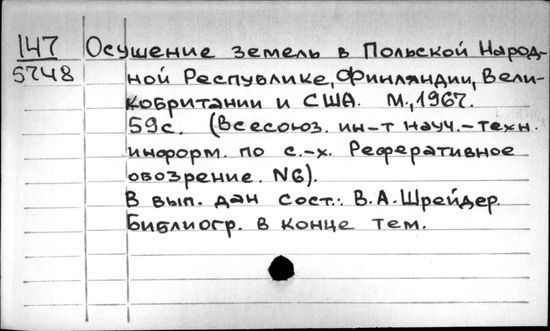 147 Осушение земель в Польской Народ-
5748 ной Республике, Финляндии, Вели-
кобритании и США. М., 1967.
59с. (Всесоюз. ин-т науч.-техн.
информ. по с.-х. Реферативное
обозрение. N6).
В вып. дан сост.: В.А.Шрейдер.
Библиогр. в конце тем.